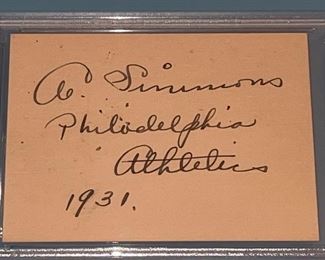 A. Simmons
Philadelphia
Athletics
1931.